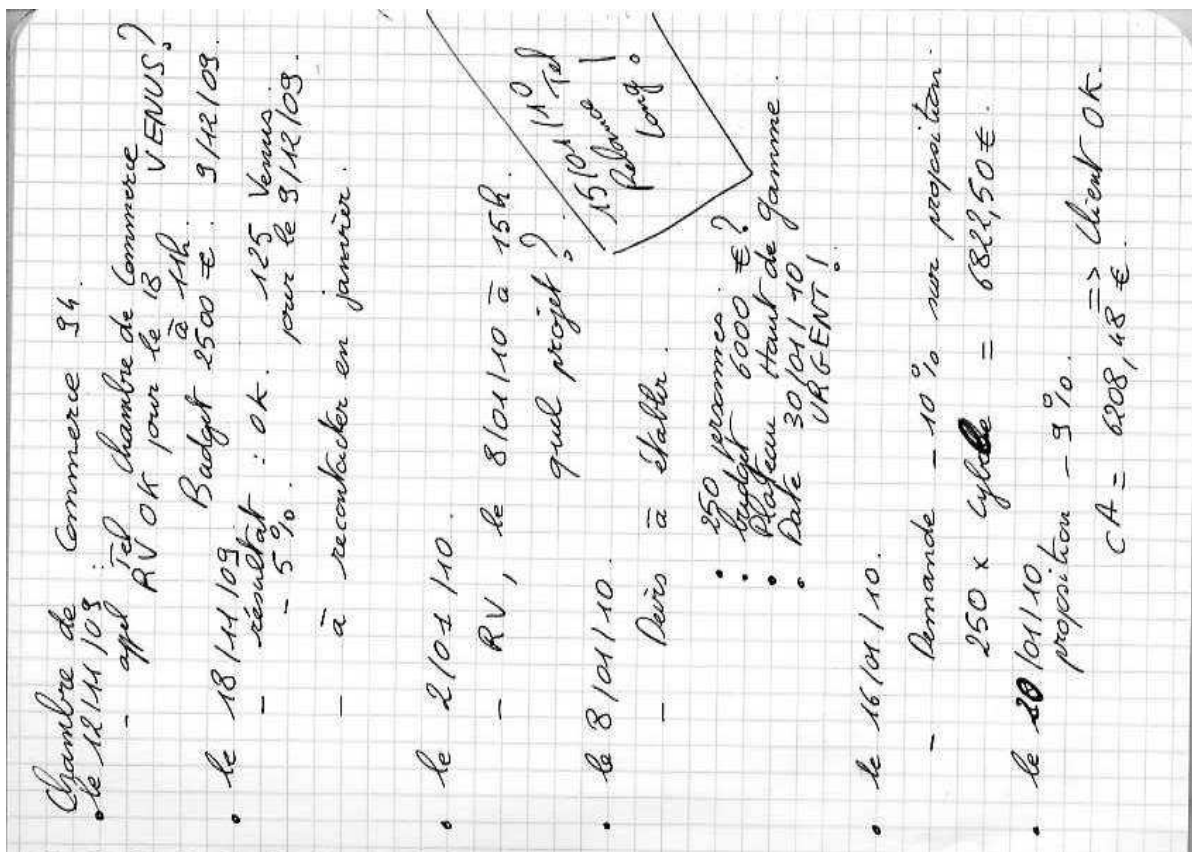 Chambre de Commerce 94.
• le 12/11/09 :
- appel Tel Chambre de Commerce
RV OK pour le 18 VENUS?
à 11h.
Budget 2500 €. 9/12/09.
• le 18/11/09
- résultat : OK. 125 Venus.
- 5%. pour le 9/12/09.
- à recontacter en janvier.
• le 2/01/10.
- RV, le 8/01/10 à 15h.
quel projet ?
15/01/10
Relance Tel
Long !
• le 8/01/10.
- Devis à établir
• 250 personnes.
• budget 6000 €?
• Plateau Haut de gamme.
• Date 30/01/10
URGENT !
• le 16/01/10.
- Demande - 10% sur proposition.
250 x cybèle = 6822,50 €.
• le 20/01/10
proposition - 9%.
CA = 6208,48 €. => Client OK.